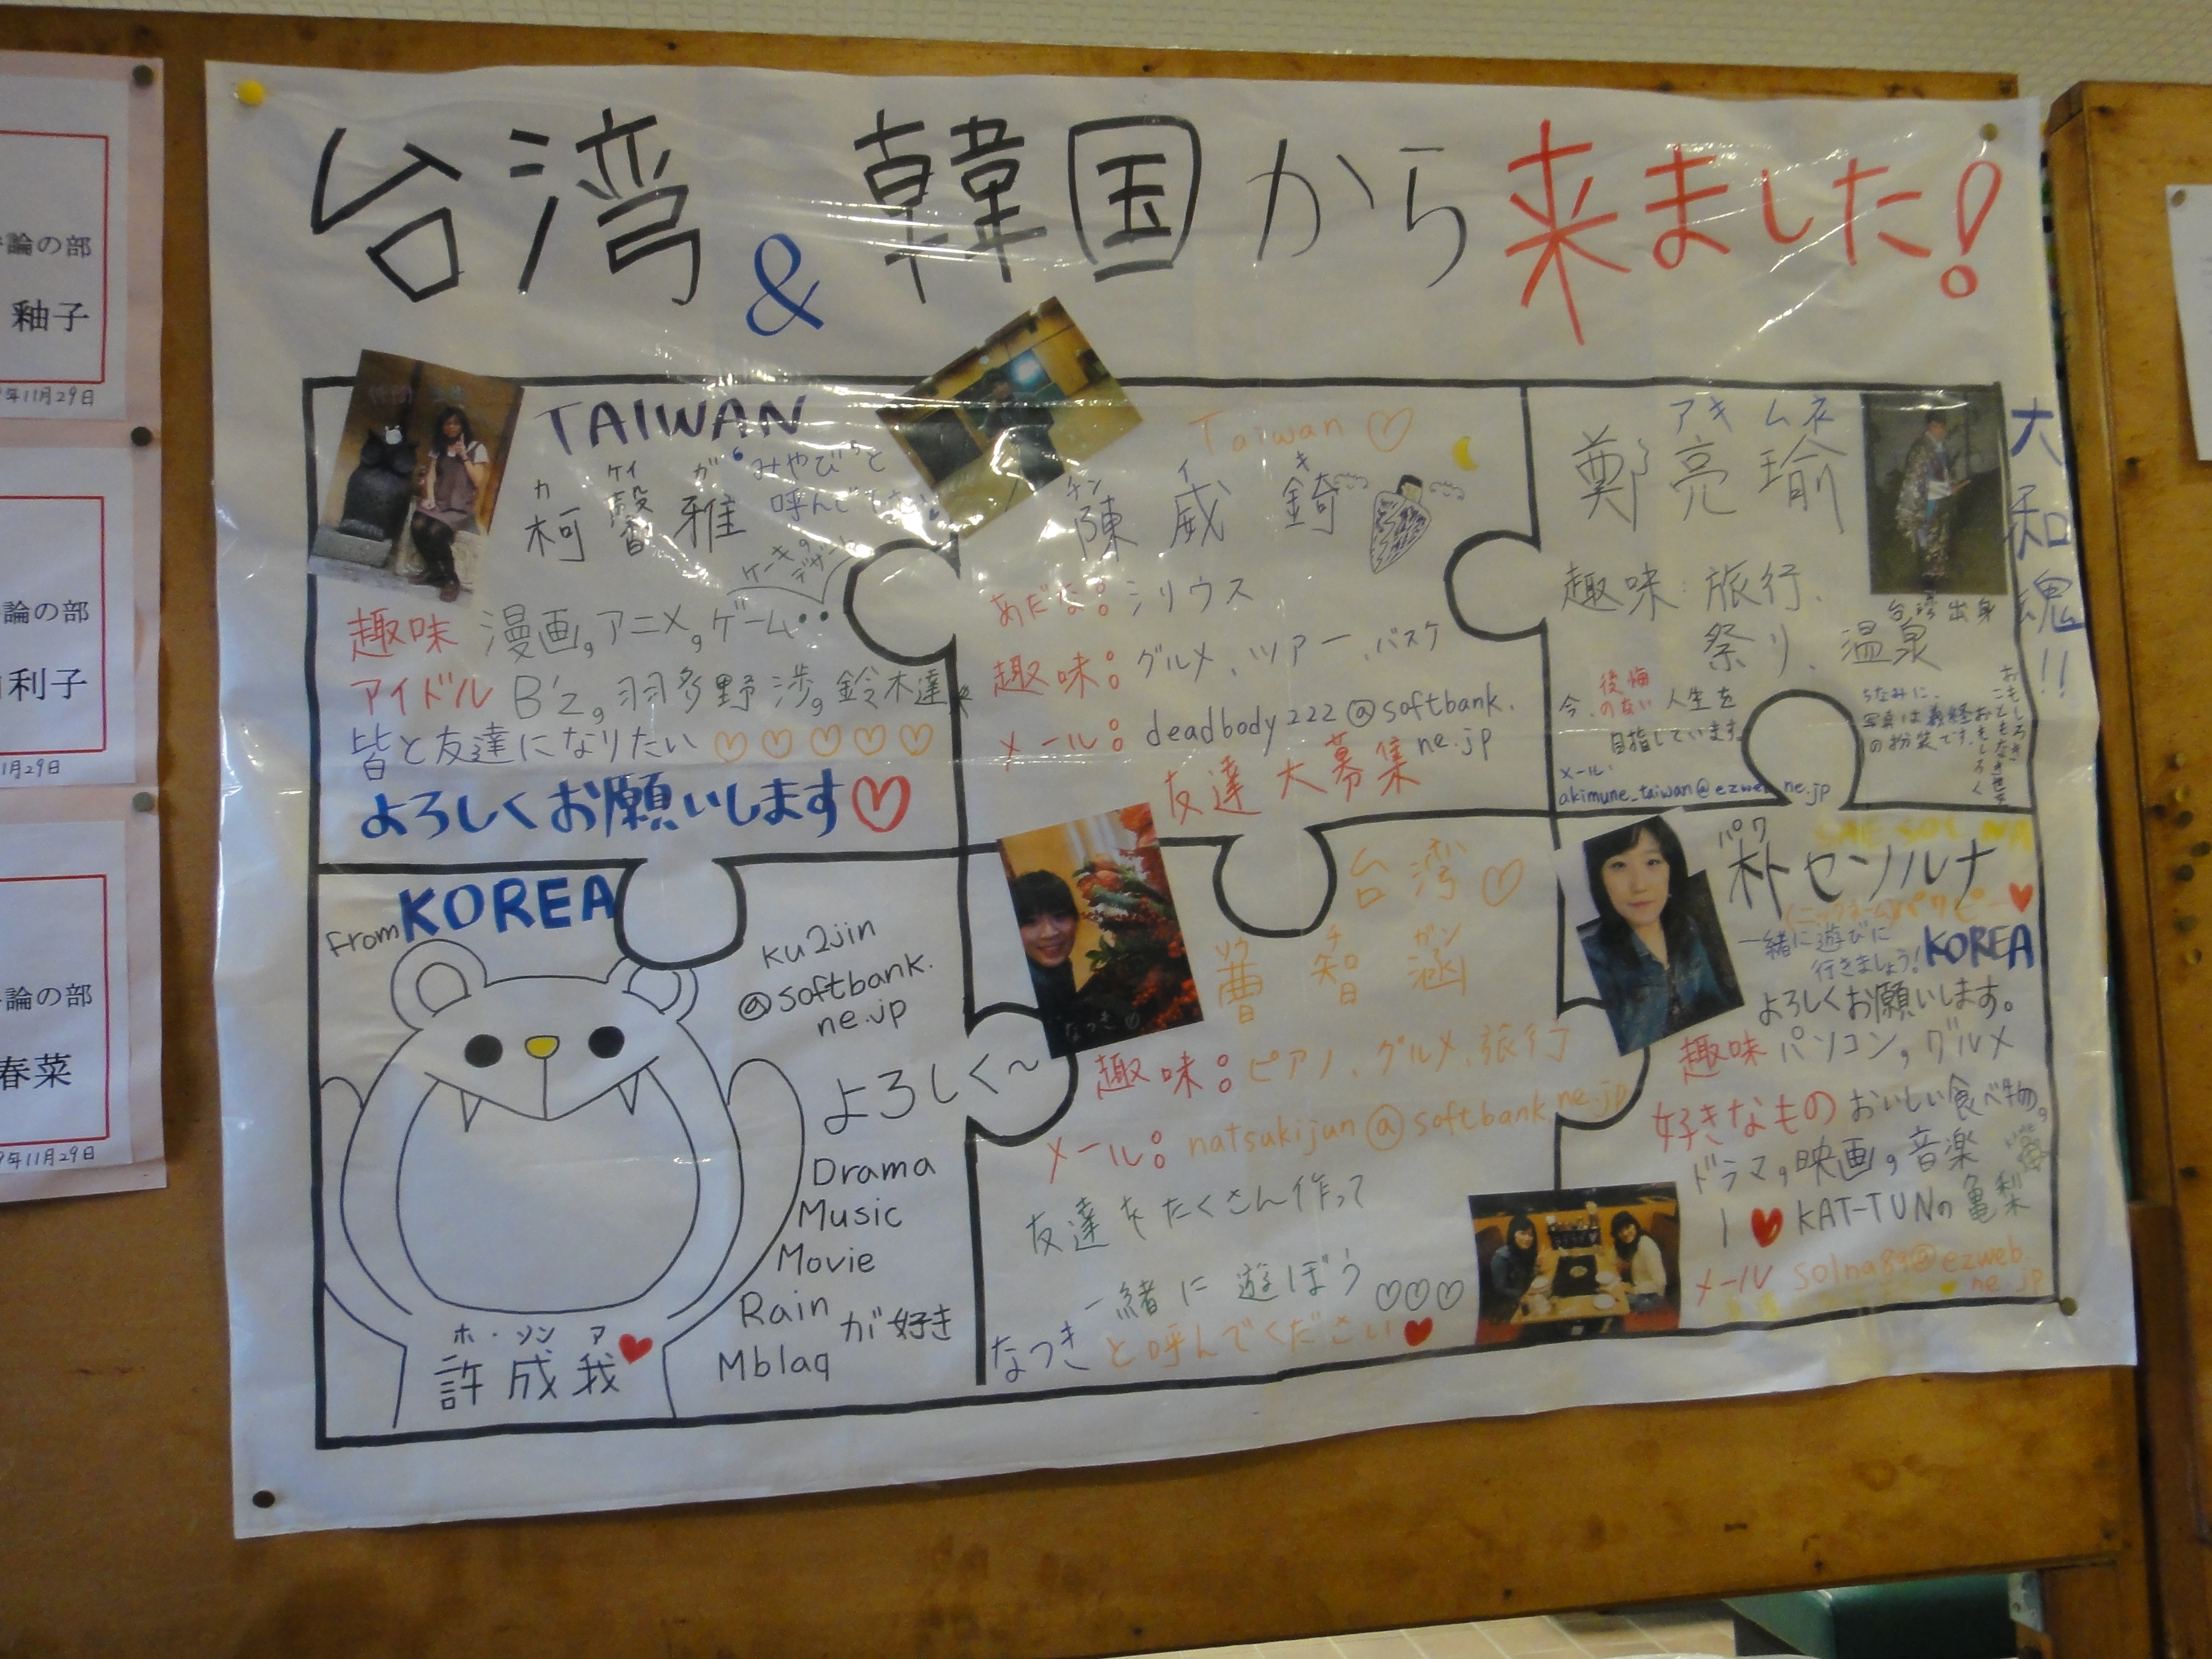 台湾&韓国から来ました!
TAIWAN
カ ケイ ガ
柯 馨 雅
みやびっと
呼んで下さい
ケーキの
デザート
趣味 漫画,アニメ,ゲーム‥
アイドル B'z,羽多野渉,鈴木達央
皆と友達になりたい♡♡♡♡♡
よろしくお願いします♡
Taiwan♡
チン イ キ
陳 威 錡
あだな:シリウス
趣味:グルメ、ツアー、バスケ
メール:deadbody222@softbank.
ne.jp
友達大募集
アキ ムネ
鄭 亮 瑜
趣味:旅行、
祭り、温泉
台湾出身
今、後悔のない人生を
目指しています。
メール:
akimune_taiwan@ezweb.ne.jp
ちなみに、
写真は義経
の扮装です。
おもしろき
こともなき世を
おもしろく
大和魂!!
from KOREA
ku2jin
@softbank.
ne.jp
よろしく~
Drama
Music
Movie
Rain
Mblaq
が好き
ホ・ソン ア
許成我♥
台湾♡
ソウ チ ガン
曹 智 涵
なつき
趣味:ピアノ、グルメ、旅行
メール:natsukijun@softbank.ne.jp
友達をたくさん作って
一緒に遊ぼう♡♡♡
なつきと呼んでください♥
パク
朴セソルナ
(ニックネーム)パクピー♥
一緒に遊びに
行きましょう!
KOREA
よろしくお願いします。
趣味 パソコン,グルメ
好きなもの おいしい食べ物,
ドラマ,映画,音楽
I ♥ KAT-TUNの亀梨
メール solna89@ezweb.
ne.jp
論の部
釉子
年11月29日
論の部
利子
1月29日
論の部
春菜
年11月29日